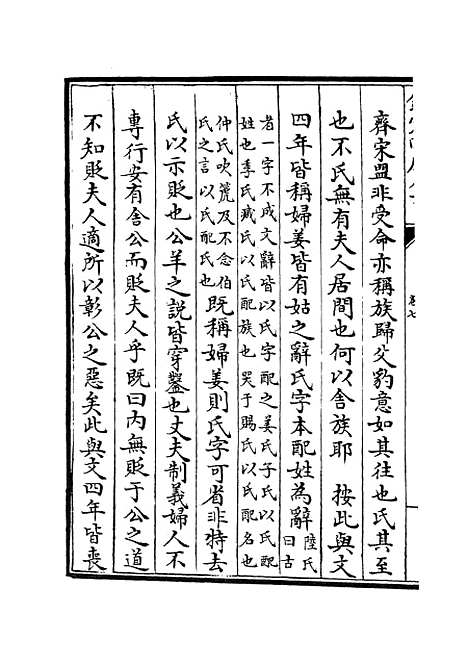 齊宋盟非受命亦稱族歸父豹意如其往也氏其至
也不氏無有夫人居間也何以舍族耶 按此與文
四年皆稱婦姜皆有姑之辭氏字本配姓為辭陸氏曰古
者一字不成文辭皆以氏字配之姜氏子氏以氏配
姓也季氏臧氏以氏配族也哭于賜氏以氏配名也
仲氏吹篪及不念伯氏之言以氏配氏也既稱婦姜則氏字可省非特去
氏以示貶也公羊之說皆穿鑿也丈夫制義婦人不
專行安有舍公而貶夫人乎既曰內無貶于公之道
不知貶夫人適所以彰公之惡矣此與文四年皆喪
卷七